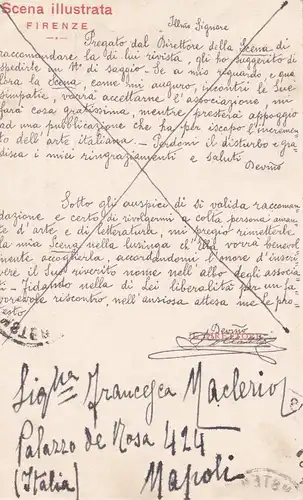 Scena illustrata
FIRENZE
Illmo Signore
Pregato dal Direttore della Scena di
raccomandare la di lui rivista, gli ho suggerito di
spedirle un N° di saggio - Se a mio riguardo, e qua
lora la Scena, come mi auguro, incontri le Sue
simpatie, vorrà accettarne l'associazione, mi
farà cosa gratissima, mentre presterà appoggio
ad una pubblicazione che ha per iscopo l'increm
to dell'arte italiana. - Perdoni il disturbo e gra
disca i miei ringraziamenti e saluti
Devmo
Sotto gli auspici di sì valida raccoman
dazione e certo di rivolgermi a colta persona aman
te d'arte e di letteratura, mi pregio rimetterle
la mia Scena nella lusinga ch'Ella vorrà benevol
mente accoglierla, accordandomi l'onore d'inscri
vere il Suo riverito nome nell'albo degli associa
ti. - Fidando nella di Lei liberalità per un fa
vorevole riscontro, nell'ansiosa attesa me le pro
testo
Devmo
Signa Francesca Maclerio
Palazzo de Rosa 424
(Italia) Napoli